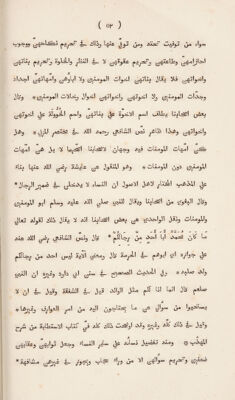 ( ٥٣ )
سواء من توفيت تحته ومن توفي عنها وذلك في تحريم نكاحهن ووجوب
احترامهن وطاعتهن وتحريم عقوقهن لا في النظر والخلوة وتحريم بناتهن
واخواتهن فلا يقال بناتهن اخوات المومنين ولا اباوهن وامهاتهن اجداد
وجدات المومنين ولا اخوتهن واخواتهن اخوال وخالات المومنين * وقال
بعض اصحابنا يطلق اسم الاخوة علي بناتهن واسم الخؤولة علي اخوتهن
واخواتهن وهذا ظاهر نص الشافعي رحمه الله في مختصر المزني * وهل
كن امهات المومنات فيه وجهان لاصحابنا اصحهما لا بل هن امهات
المومنين دون المومنات * وهو المنقول عن عايشة رضي الله عنها بناء
علي المذهب المختار لاهل الاصول ان النساء لا يدخلن في ضمير الرجال *
وقال البغوي من اصحابنا ويقال للنبي صلي الله عليه وسلم ابو المومنين
والمومنات ونقل الواحدي عن بعض اصحابنا انه لا يقال ذلك لقوله تعالي
مَا كَانَ مُحَمَّدٌ أَبَا أَحَدٍ مِنْ رِجَالِكُمْ * قال ونص الشافعي رضي الله عنه
علي جوازه اي ابوهم في الحرمة قال ومعني الاية ليس احد من رجالكم
ولد صلبه * وفي الحديث الصحيح في سنن ابي داود وغيره ان النبي
صلعم قال انما انا لكم مثل الوالد قيل في الشفقة وقيل في ان لا
يستحيوا من سوالي عن ما يحتاجون اليه من امر العورات وغيرها *
وقيل في ذلك كله وغيره وقد اوضحت ذلك كله في كتاب الاستطابة من شرح
المهذب * ومنه تفضيل نسائه علي ساير النساء وجعل ثوابهن وعقابهن
ضعفين وتحريم سوالهن الا من وراء حجاب ويجوز في غيرهن مشافهة *